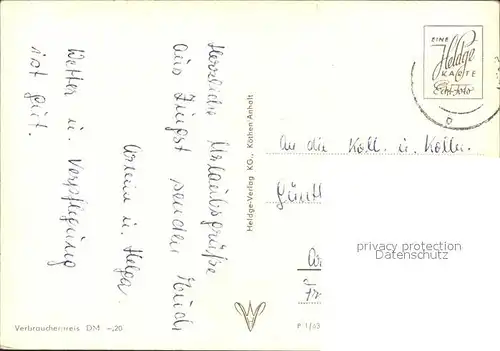 Herzliche Urlaubsgrüße
aus Zingst senden Euch
Armin u. Helga.
Wetter u. Verpflegung
ist gut.
Verbraucherpreis DM -,20
Heldge-Verlag KG., Köthen-Anhalt
EINE
Heldge
KARTE
Echt Foto
An die Koll. u. Kolln.
Günth
privacy protection
watermark
P 1/63